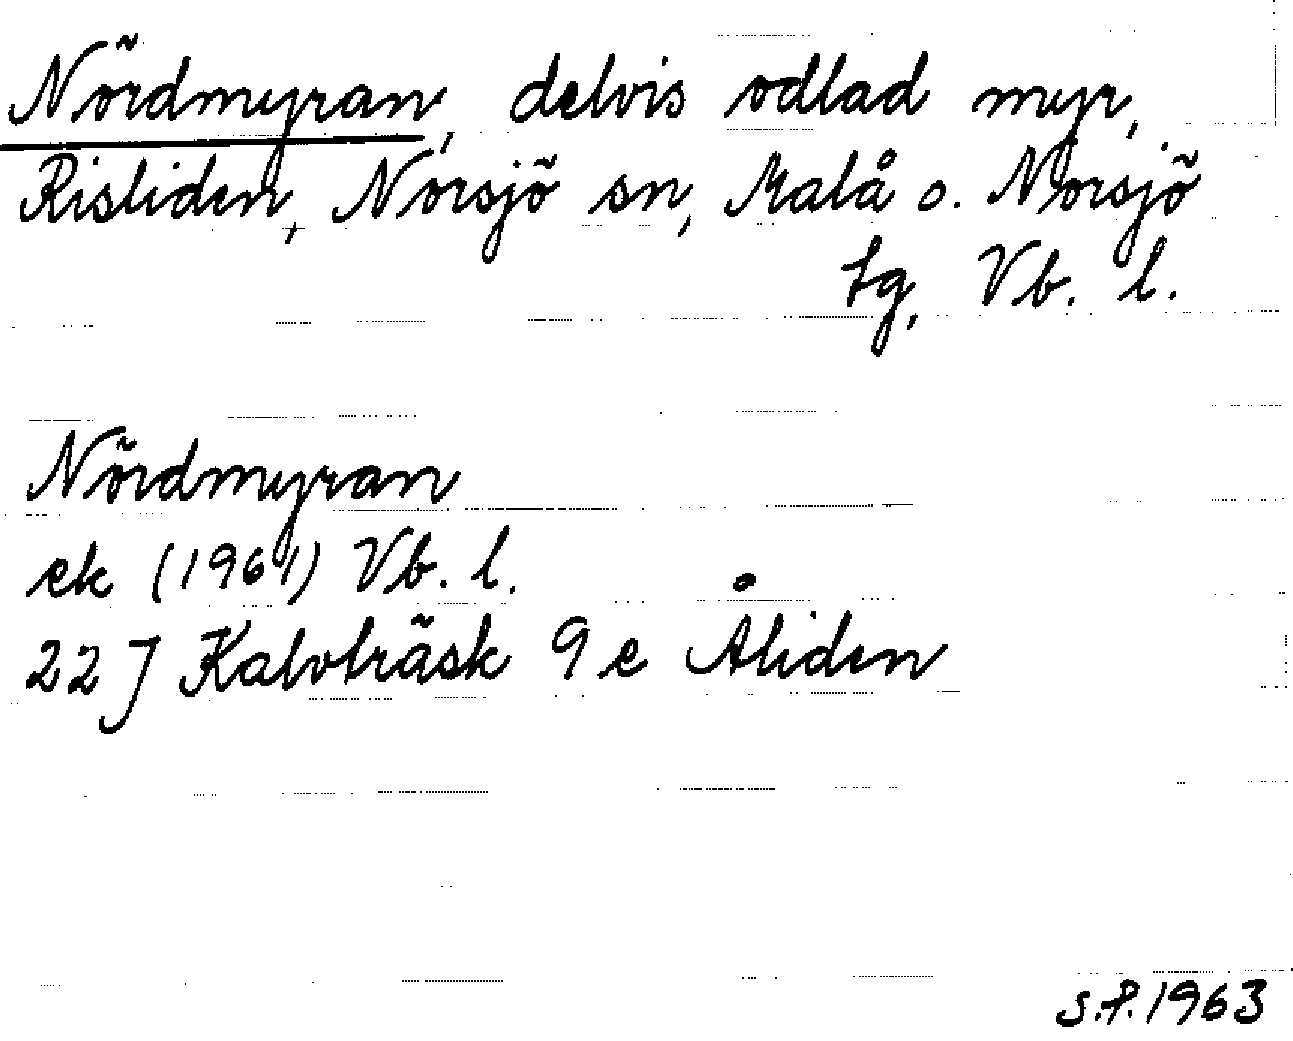 Nördmyran, delvis odlad myr,
Risliden, Norsjö sn, Malå o. Norsjö
tg, Vb. l.
Nördmyran
ek (1961) Vb. l.
22 J Kalvträsk 9 e Åliden
S.P. 1963